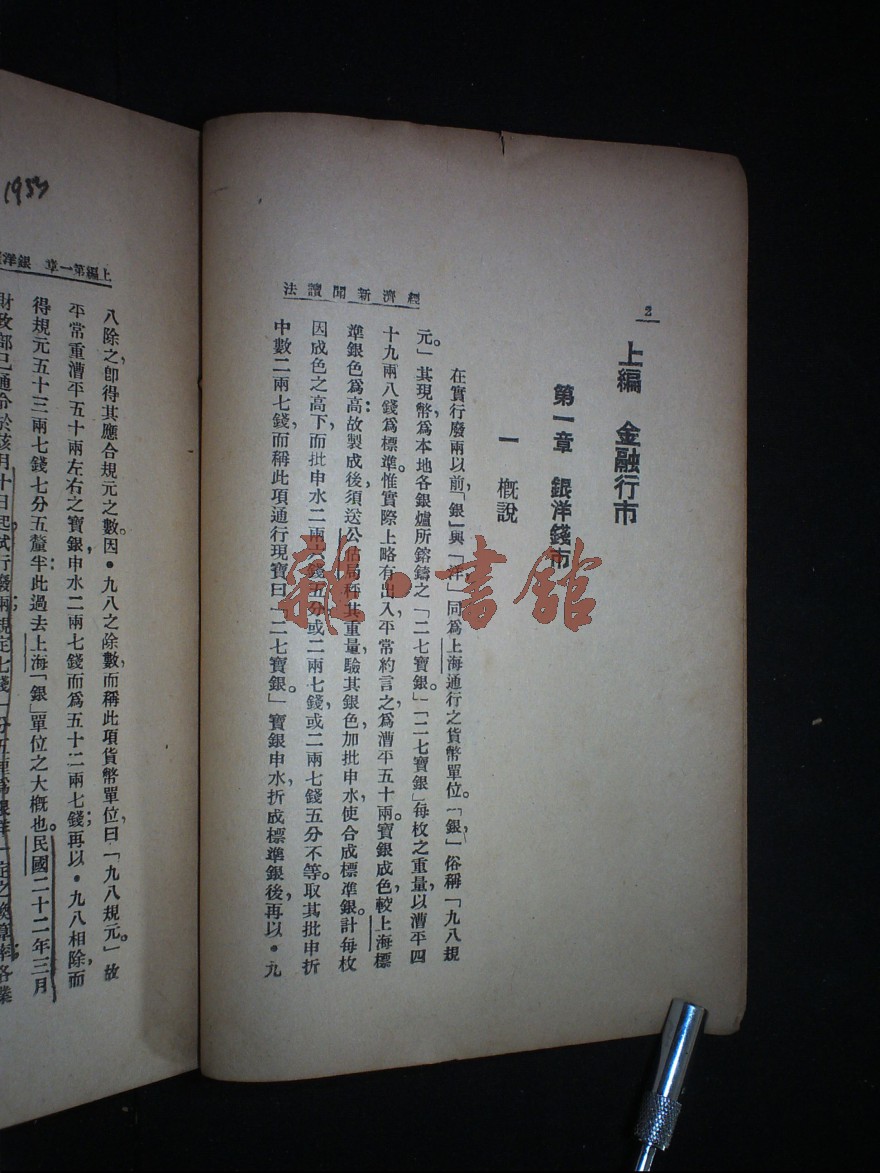 2
經濟新聞讀法
上編　金融行市
第一章　銀洋錢市
一　槪說
在實行廢兩以前，「銀」與「洋」同爲上海通行之貨幣單位。「銀」俗稱「九八規
元。」其現幣，爲本地各銀爐所鎔鑄之「二七寶銀。」「二七寶銀」每枚之重量，以漕平四
十九兩八錢爲標準。惟實際上略有出入，平常約言之，爲漕平五十兩。寶銀成色，較上海標
準銀色爲高：故製成後，須送公估局秤其重量，驗其銀色，加批申水，使合成標準銀。計每枚
因成色之高下，而批申水二兩六錢五分，或二兩七錢，或二兩七錢五分不等。取其批申折
中數二兩七錢，而稱此項通行現寶曰「二七寶銀。」寶銀申水，折成標準銀後，再以·九
1933
上編第一章　銀洋
八除之，卽得其應合規元之數。因·九八之除數，而稱此項貨幣單位，曰「九八規元。」故
平常重漕平五十兩左右之寶銀，申水二兩七錢，而爲五十二兩七錢；再以·九八相除，而
得規元五十三兩七錢七分五釐半；此過去上海「銀」單位之大槪也。民國二十二年三月
財政部已通令於該月十日起，試行廢兩，規定七錢一分五釐爲銀洋一定之換算率；各業